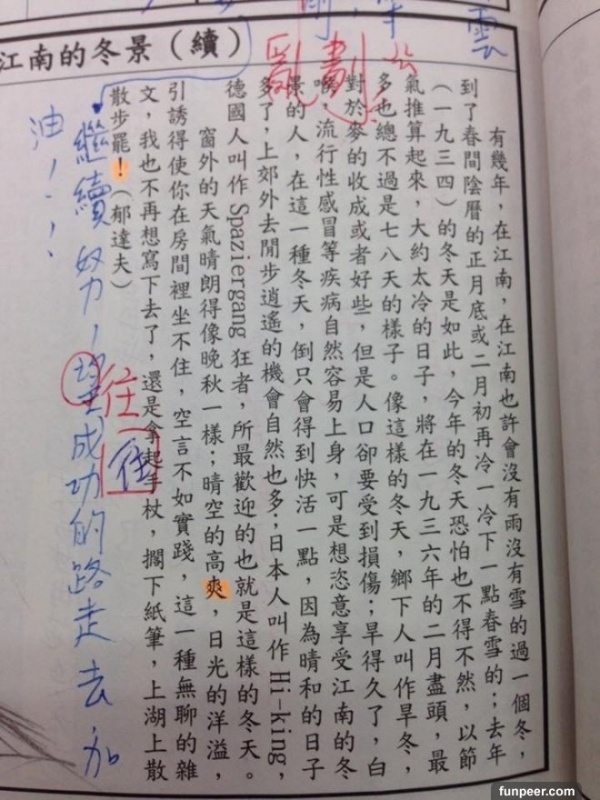 雲
江南的冬景（續）
亂劃
有幾年，在江南，在江南也許會沒有雨沒有雪的過一個冬，
到了春間陰曆的正月底或二月初再冷一冷下一點春雪的；去年
（一九三四）的冬天是如此，今年的冬天恐怕也不得不然，以節
氣推算起來，大約太冷的日子，將在一九三六年的二月盡頭，最
多也總不過是七八天的樣子。像這樣的冬天，鄉下人叫作旱冬，
對於麥的收成或者好些，但是人口卻要受到損傷；旱得久了，白
喉，流行性感冒等疾病自然容易上身，可是想恣意享受江南的冬
景的人，在這一種冬天，倒只會得到快活一點，因為晴和的日子
多了，上郊外去閒步逍遙的機會自然也多；日本人叫作 Hi-king，
德國人叫作 Spaziergang 狂者，所最歡迎的也就是這樣的冬天。
窗外的天氣晴朗得像晚秋一樣；晴空的高爽，日光的洋溢，
引誘得使你在房間裡坐不住，空言不如實踐，這一種無聊的雜
文，我也不再想寫下去了，還是拿起手杖，擱下紙筆，上湖上散
散步罷！（郁達夫）
往
往
繼續努力，成功的路走去加
油！！
funpeer.com